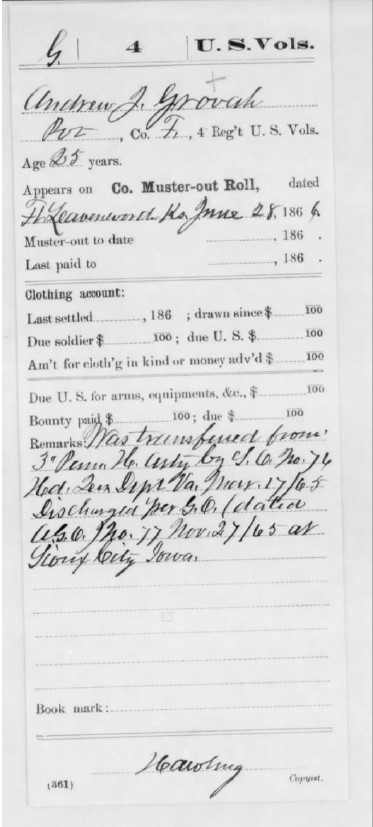 G. | 4 | U.S. Vols.
Andrew J. Grovah
Pvt, Co. F, 4 Reg't U. S. Vols.
Age 25 years.
Appears on Co. Muster-out Roll, dated
Ft. Leavenworth Ks, June 28, 1866.
Muster-out to date , 186 .
Last paid to , 186 .
Clothing account:
Last settled , 186 ; drawn since $ 100
Due soldier $ 100; due U. S. $ 100
Am't for cloth'g in kind or money adv'd $ 100
Due U. S. for arms, equipments, &c., $ 100
Bounty paid $ 100; due $ 100
Remarks: Was transferred from
3" Penn. H. Arty by S. O. No. 76
Hd. Qrs Dept Va. Mar. 17/65
Discharged per G.O. (dated
A.G.O.) No. 77 Nov. 27/65 at
Sioux City Iowa.
Book mark:
(361) Copyist.